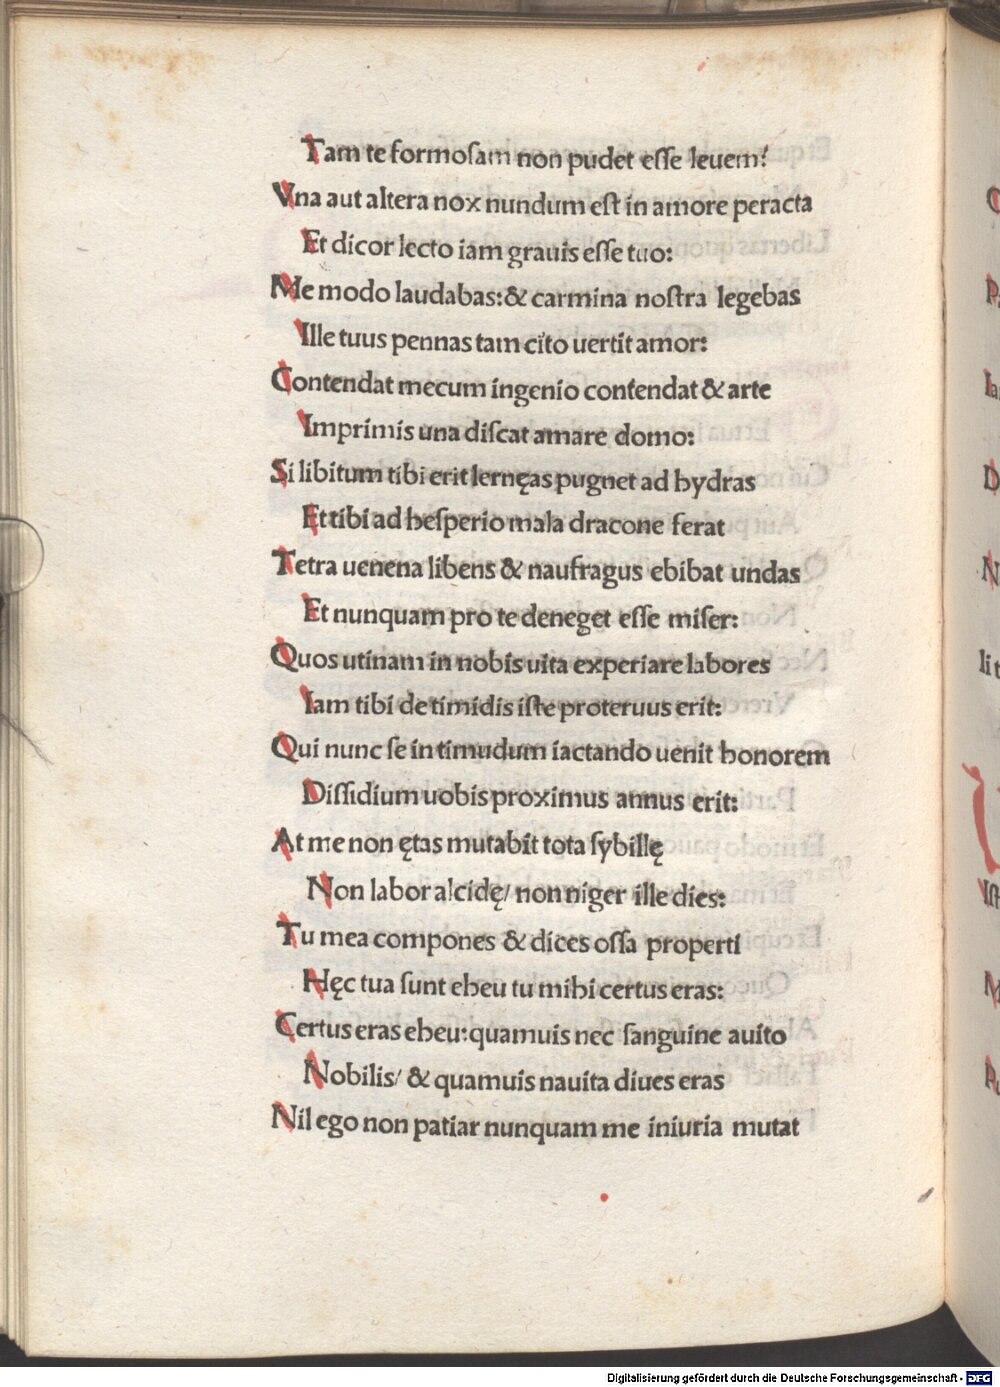 Tam te formoſam non pudet eſſe leuem?
Vna aut altera nox nundum eſt in amore peracta
Et dicor lecto iam grauis eſſe tuo:
Me modo laudabas:& carmina noſtra legebas
Ille tuus pennas tam cito uertit amor:
Contendat mecum ingenio contendat & arte
Imprimis una diſcat amare domo:
Si libitum tibi erit lernęas pugnet ad hydras
Et tibi ad heſperio mala dracone ferat
Tetra uenena libens & naufragus ebibat undas
Et nunquam pro te deneget eſſe miſer:
Quos utinam in nobis uita experiare labores
Iam tibi de timidis iſte proteruus erit:
Qui nunc ſe in timudum iactando uenit honorem
Diſſidium uobis proximus annus erit:
At me non ętas mutabit tota ſybillę
Non labor alcidę/ non niger ille dies:
Tu mea compones & dices oſſa properti
Hęc tua ſunt eheu tu mihi certus eras:
Certus eras eheu:quamuis nec ſanguine auito
Nobilis/ & quamuis nauita diues eras
Nil ego non patiar nunquam me iniuria mutat
Digitalisierung gefördert durch die Deutsche Forschungsgemeinschaft - DFG